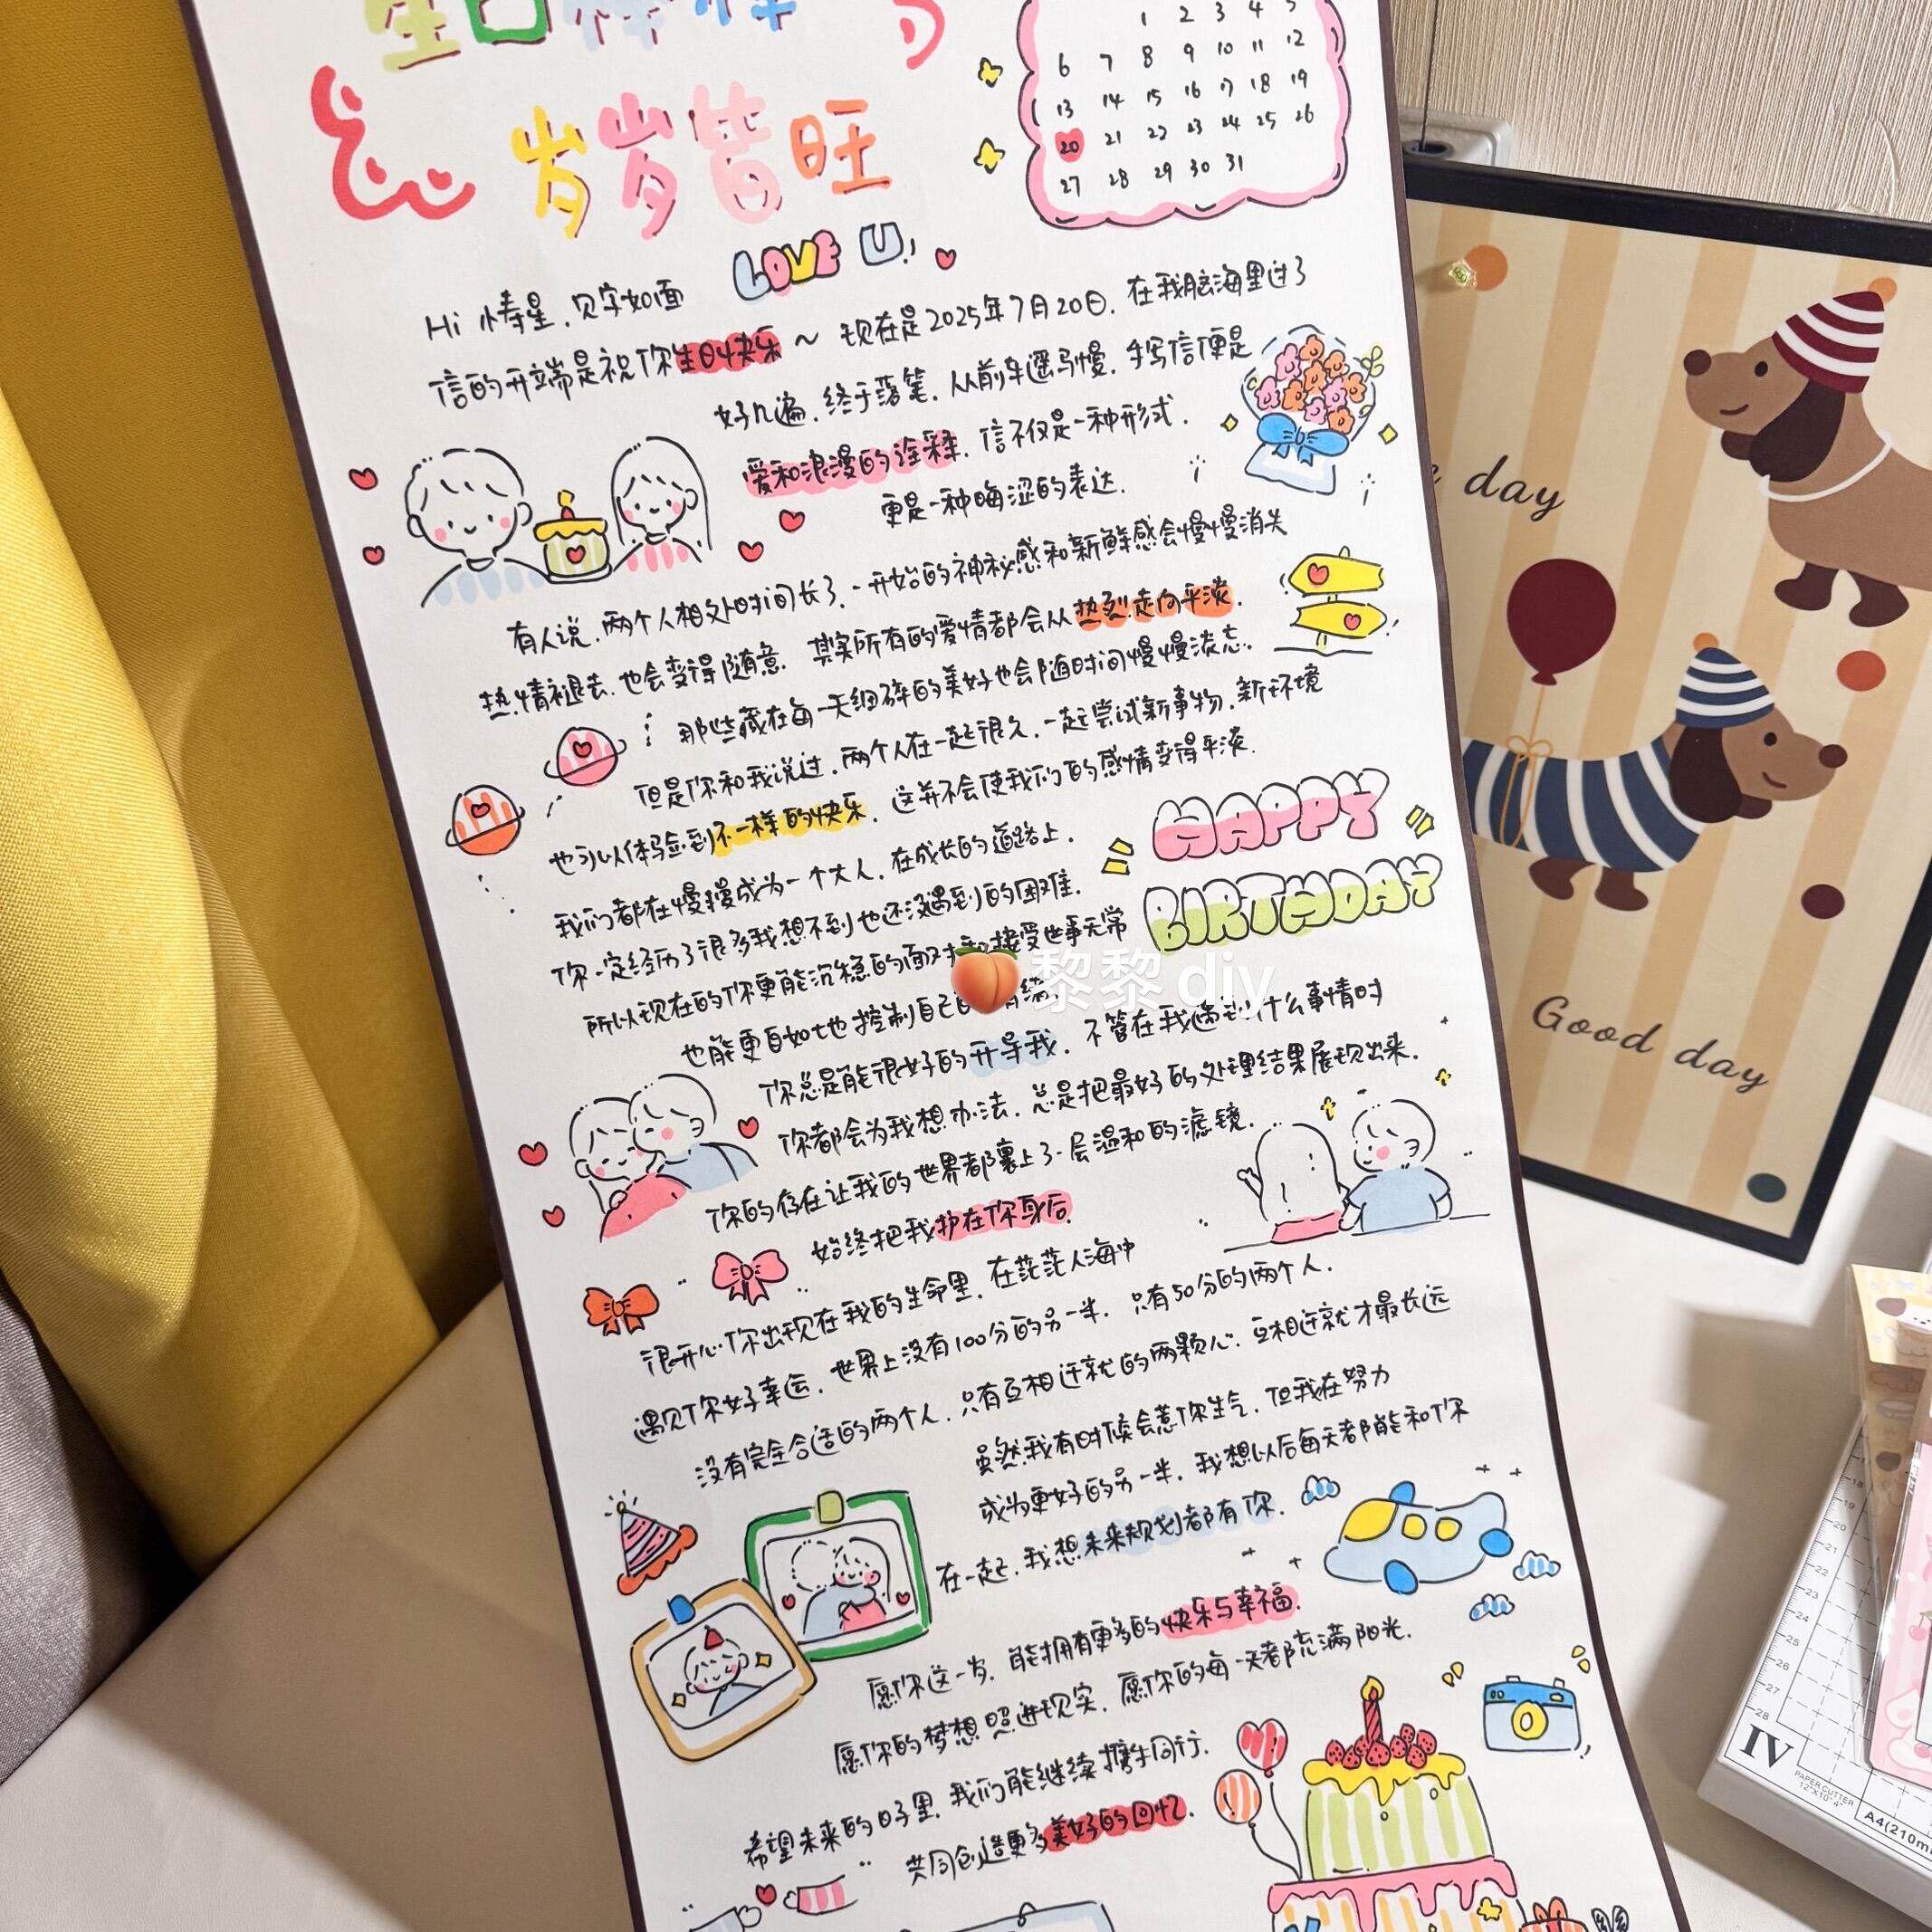 岁岁皆旺
1 2 3 4 5
6 7 8 9 10 11 12
13 14 15 16 17 18 19
20 21 22 23 24 25 26
27 28 29 30 31
LOVE U!
Hi 寿星，见字如面
信的开端是祝你生日快乐～ 现在是2025年7月20日，在我脑海里过了
好几遍，终于落笔，从前车遥马慢，手写信便是
爱和浪漫的诠释，信不仅是一种形式，
更是一种晦涩的表达，
有人说，两个人相处时间长了，一开始的神秘感和新鲜感会慢慢消失
热情褪去，也会变得随意，其实所有的爱情都会从热烈走向平淡，
那些藏在每一天细碎的美好也会随时间慢慢淡忘，
但是你和我说过，两个人在一起很久，一起尝试新事物，新环境
也可以体验到不一样的快乐，这并不会使我们的感情变得平淡，
我们都在慢慢成为一个大人，在成长的道路上，
HAPPY
BIRTHDAY
你一定经历了很多我想不到也还没遇到的困难，
所以现在的你更能沉稳的面对和接受世事无常
黎黎diy
也能更自如地控制自己的情绪，
你总是能很好的开导我，不管在我遇到什么事情时
你都会为我想办法，总是把最好的处理结果展现出来，
你的存在让我的世界都裹上了一层温和的滤镜，
始终把我护在你身后，
很开心你出现在我的生命里，在茫茫人海中
遇见你好幸运，世界上没有100分的另一半，只有50分的两个人，
没有完全合适的两个人，只有互相迁就的两颗心，互相迁就才最长远
虽然我有时候会惹你生气，但我在努力
成为更好的另一半，我想以后每天都能和你
在一起，我想未来规划都有你，
愿你这一岁，能拥有更多的快乐与幸福，
愿你的梦想照进现实，愿你的每一天都充满阳光，
希望未来的日子里，我们能继续携手同行，
共同创造更多美好的回忆，
day
Good day
18
19
20
21
22
23
24
25
26
27
28
IV
PAPER CUTTER
12"X10"4"
A4(210m